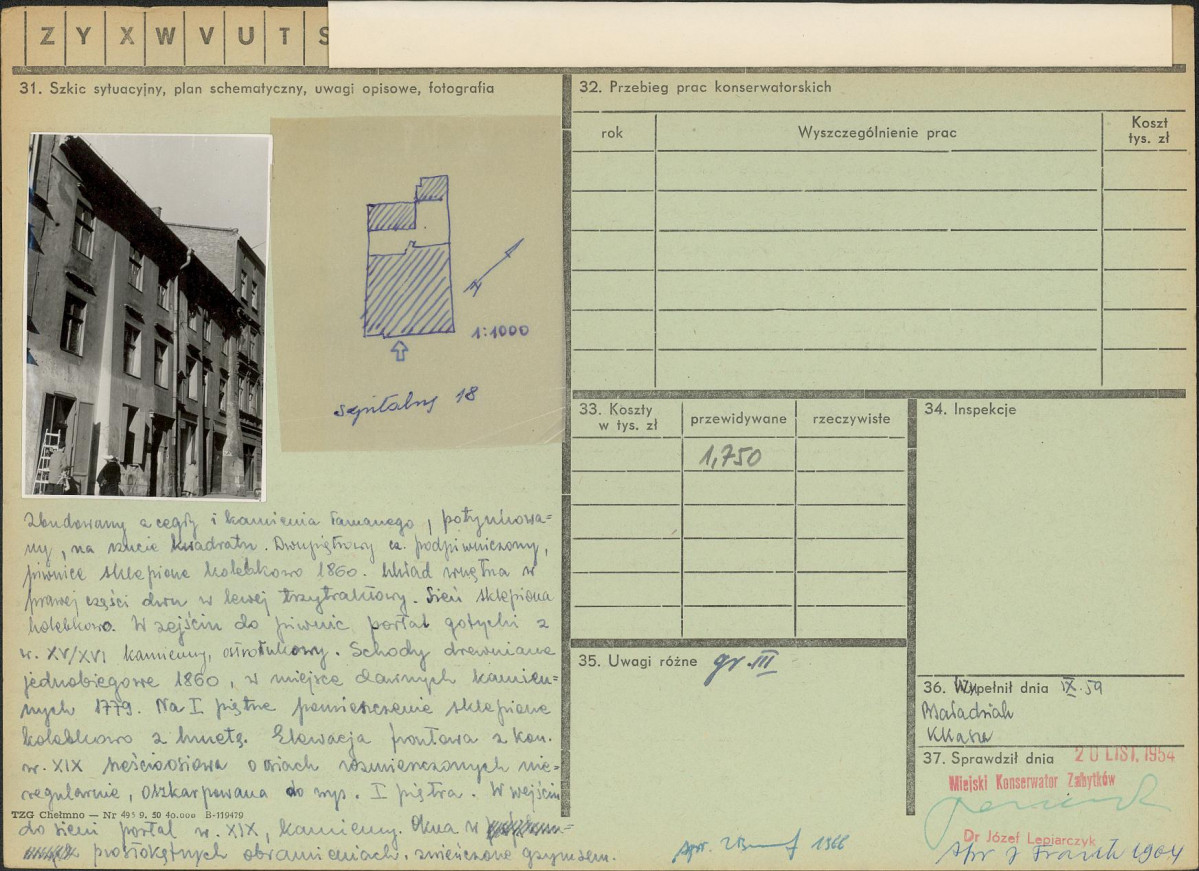 Z Y X W V U T S
31. Szkic sytuacyjny, plan schematyczny, uwagi opisowe, fotografia
1:1000
szpitalny 18
Zbudowany z cegły i kamienia łamanego, potynkowa=
ny, na rzucie kwadratu. Dwupiętrowy cz. podpiwniczony,
piwnice sklepione kolebkowo 1860. Układ wnętrza w
prawej części dwu w lewej trzytraktowy. Sień sklepiona
kolebkowo. W zejściu do piwnic portal gotycki z
w. XV/XVI kamienny, ostrołukowy. Schody drewniane
jednobiegowe 1860, w miejsce dawnych kamien=
nych 1779. Na I piętrze pomieszczenie sklepione
kolebkowo z lunetą. Elewacja frontowa z kon.
w. XIX sześcioosiowa o osiach rozmieszczonych nie=
regularnie, oszkarpowana do wys. I piętra. W wejściu
do sieni portal w. XIX, kamienny. Okna w
prostokątnych obramieniach, zwieńczone gzymsem.
TZG Chełmno — Nr 495 9. 50 40.000 B-119479
32. Przebieg prac konserwatorskich
rok
Wyszczególnienie prac
Koszt
tys. zł
33. Koszty
w tys. zł
przewidywane
rzeczywiste
1,750
34. Inspekcje
35. Uwagi różne gr. III
36. Wypełnił dnia IX.59
KKasia
37. Sprawdził dnia 20 LIST. 1954
Miejski Konserwator Zabytków
Dr Józef Lepiarczyk
spr. 1966
spr 1964